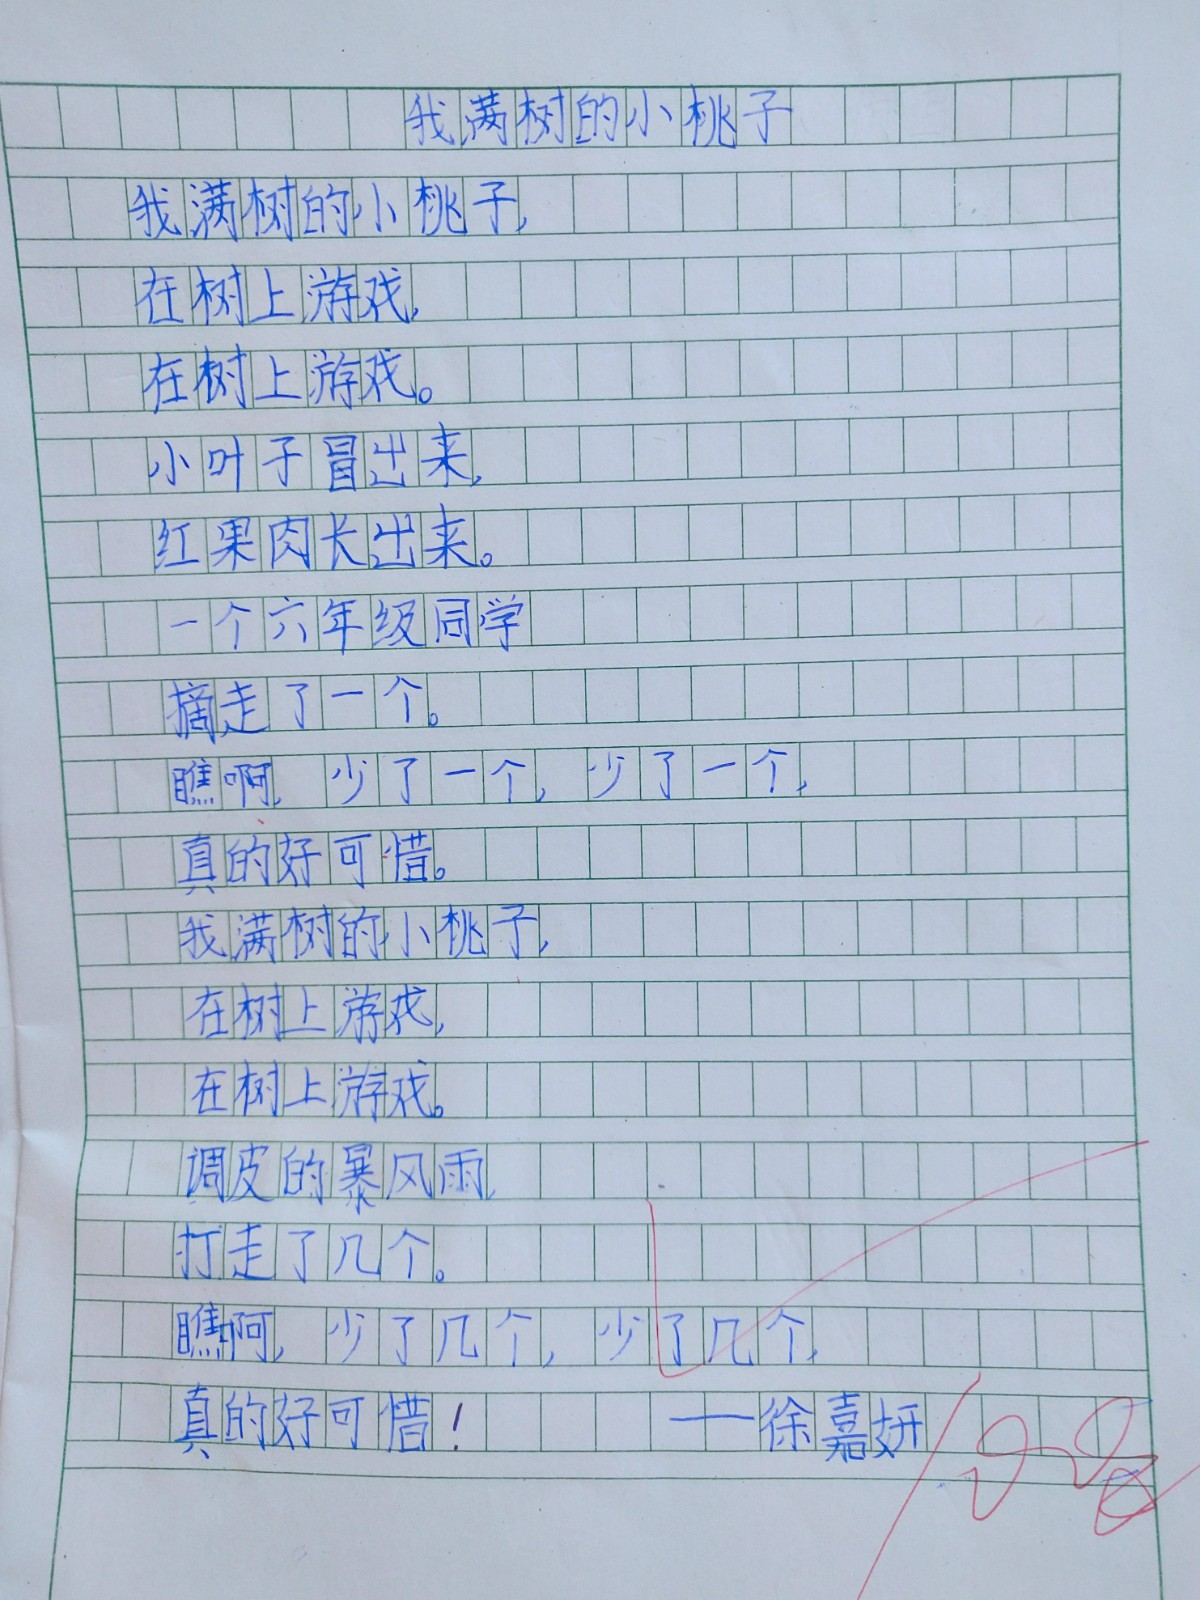 我满树的小桃子
我满树的小桃子,
在树上游戏,
在树上游戏。
小叶子冒出来,
红果肉长出来。
一个六年级同学
摘走了一个。
瞧啊, 少了一个, 少了一个,
真的好可惜。
我满树的小桃子,
在树上游戏,
在树上游戏。
调皮的暴风雨,
打走了几个。
瞧啊, 少了几个, 少了几个,
真的好可惜! ——徐嘉妍